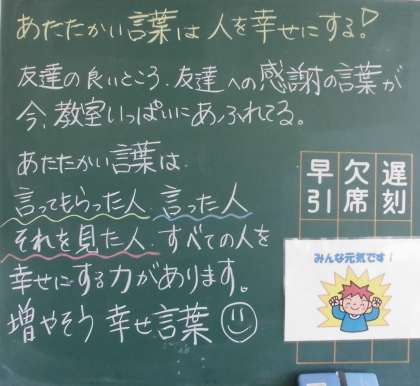 あたたかい言葉は人を幸せにする!
友達の良いところ、友達への感謝の言葉が
今、教室いっぱいにあふれてる。
あたたかい言葉は
言ってもらった人、言った人
それを見た人、すべての人を
幸せにする力があります。
増やそう 幸せ言葉
早引 欠席 遅刻
みんな元気です!